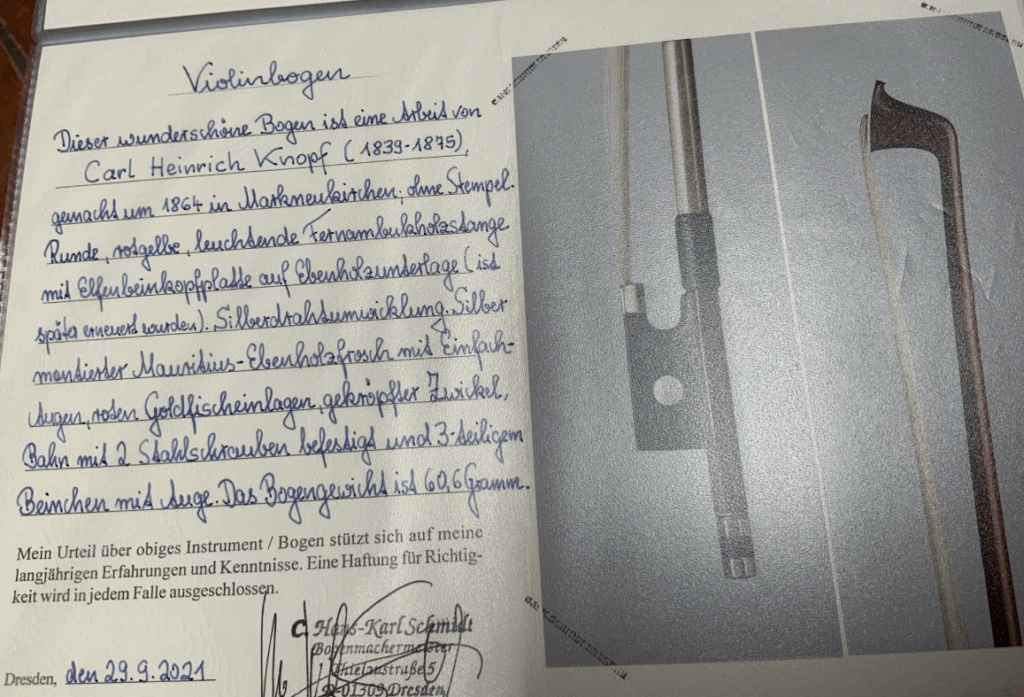 Violinbogen
Dieser wunderschöne Bogen ist eine Arbeit von
Carl Heinrich Knopf (1839-1875),
gemacht um 1864 in Markneukirchen; ohne Stempel.
Runde, rotgelbe, leuchtende Fernambukholzstange
mit Elfenbeinkopfplatte auf Ebenholzunterlage (ist
später erneuert wurden). Silberdrahtumwicklung. Silber
montierter Mauritius-Ebenholzfrosch mit Einfach-
Augen, roten Goldfischeinlagen, gekröpfter Zwickel,
Bahn mit 2 Stahlschrauben befestigt und 3-teiligem
Beinchen mit Auge. Das Bogengewicht ist 60,6 Gramm.
Mein Urteil über obiges Instrument / Bogen stützt sich auf meine
langjährigen Erfahrungen und Kenntnisse. Eine Haftung für Richtig-
keit wird in jedem Falle ausgeschlossen.
Hans-Karl Schmidt
Bogenmachermeister
5
01309 Dresden
Dresden, den 29.9.2021